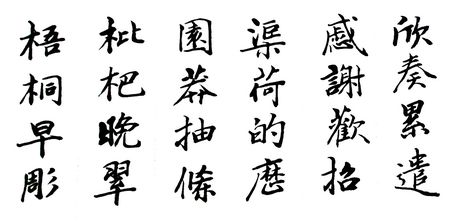 欣奏累遣
慼謝歡招
渠荷的歷
園莽抽條
枇杷晚翠
梧桐早彫